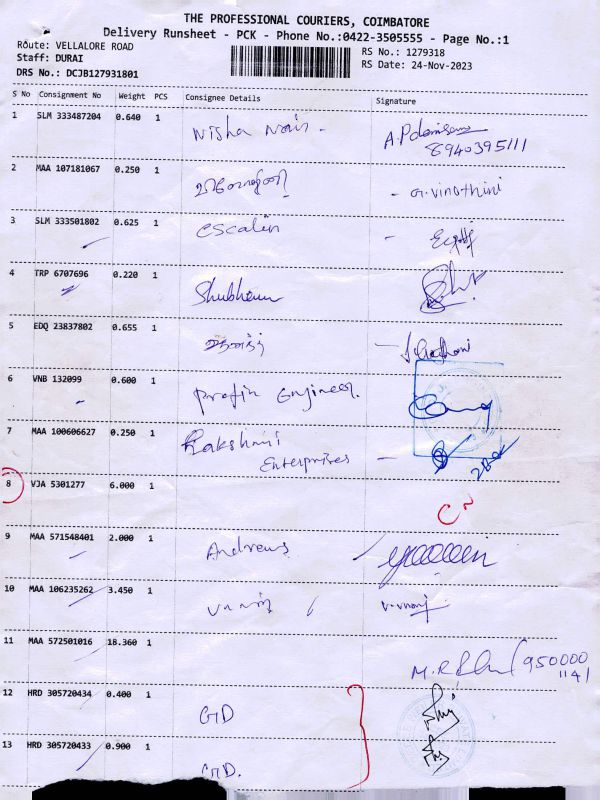 THE PROFESSIONAL COURIERS, COIMBATORE
Delivery Runsheet - PCK - Phone No.:0422-3505555 - Page No.:1
Route: VELLALORE ROAD RS No.: 1279318
Staff: DURAI RS Date: 24-Nov-2023
DRS No.: DCJB127931801
S No Consignment No Weight PCS Consignee Details Signature
1 SLM 333487204 0.640 1 Nisha Nair -
8940395111
2 MAA 107181067 0.250 1 - G. Vinothini
3 SLM 333501802 0.625 1 escalin -
4 TRP 6707696 0.220 1 Shubham
5 EDQ 23837802 0.655 1
6 VNB 132099 0.600 1 Profin Engineer.
7 MAA 100606627 0.250 1 Rakshani
Enterprises -
8 VJA 5301277 6.000 1
9 MAA 571548401 2.000 1 Andrews
10 MAA 106235262 3.450 1
11 MAA 572501016 18.360 1 950000
1141
12 HRD 305720434 0.400 1 GTD
13 HRD 305720433 0.900 1 GTD.